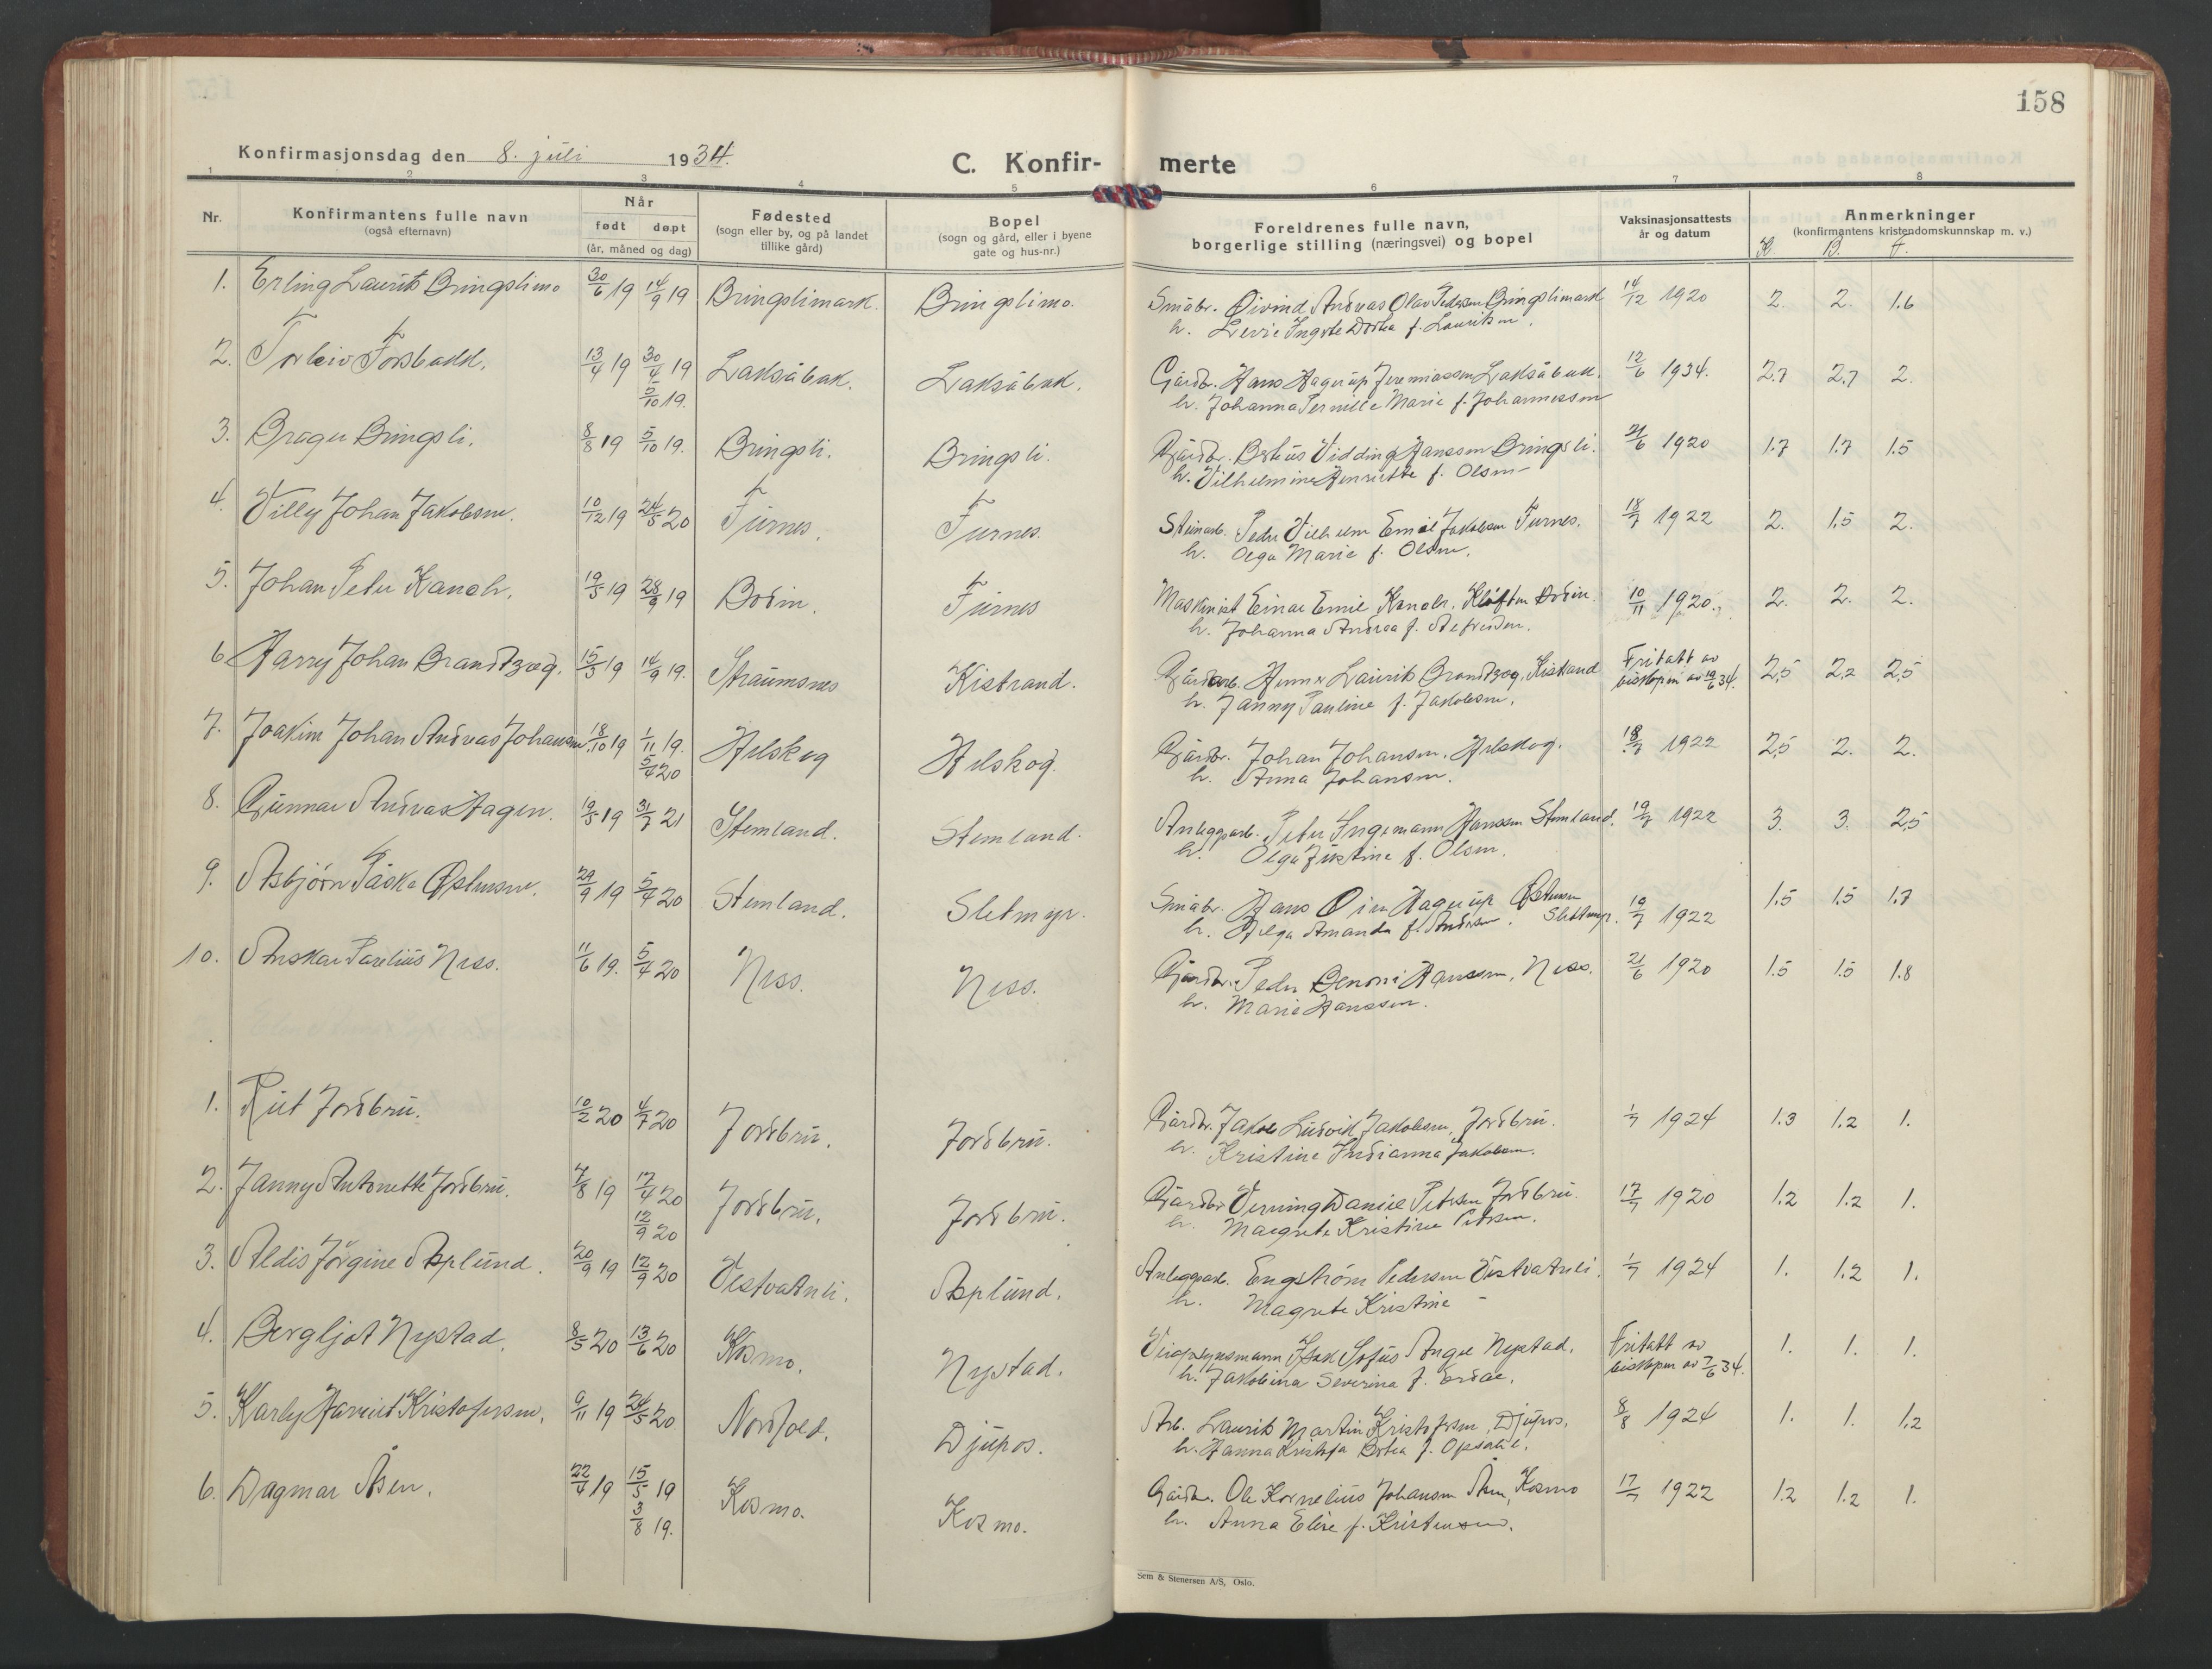 158
Konfirmasjonsdag den 8. juli 1934.
C. Konfir- merte
1 2 3 4 5 6 7 8
Nr.
Konfirmantens fulle navn
(også efternavn)
Når
født døpt
(år, måned og dag)
Fødested
(sogn eller by, og på landet
tillike gård)
Bopel
(sogn og gård, eller i byene
gate og hus-nr.)
Foreldrenes fulle navn,
borgerlige stilling (næringsvei) og bopel
Vaksinasjonsattests
år og datum
Anmerkninger
(konfirmantens kristendomskunnskap m. v.)
K. B. F.
1. Erling Laurits Bringslimo 30/6 19 14/9 19 Bringslimark. Bringslimo. Småbr. Øivind Andreas Olav Pedersen Bringslimark 14/12 1920 2. 2. 1.6
h. Ingste Dortea f. Lauritsen.
2. Torleiv Forsbakk. 13/4 19 30/4 19 Laksåbak. Laksåbak. Gårdbr. Hans Hagerup Jeremiassen Laksåbak. 12/6 1934. 2.7 2.7 2.
5/10 19. h. Johanna Pernille Marie f. Johannessen
3. Brage Bringsli. 8/8 19 5/10 19. Bringsli. Bringsli. Gårdbr. Berteus Vidding Hanssen Bringsli. 21/6 1920 1.7 1.7 1.5
h. Vilhelmine Henriette f. Olsen
4. Villy Johan Jakobsen. 10/12 19 24/5 20 Furnes. Furnes. Steinarb. Peder Vilhelm Emil Jakobsen Furnes. 18/7 1922 2. 1.5 2.
h. Olga Marie f. Olsen.
5. Johan Peter Kanch. 19/5 19 28/9 19 Bodin. Furnes Maskinist Einar Emil Kanch, Kløften Bodin. 10/11 1920. 2. 2. 2.
h. Johanna Andrea f. Alfredsen.
6. Harry Johan Brandtzæg. 15/5 19 14/9 19. Straumsnes Kistrand. Gårdarb. Henner Laurits Brandtzæg, Kistrand Fritatt av 2,5 2,2 2,5
h. Janny Pauline f. Jakobsen. biskopen av 19/6 34.
7. Joakim Johan Andreas Johansen. 18/10 19 1/11 19. Helskog Helskog. Gårdbr. Johan Johansen. Helskog. 18/7 1922 2,5 2. 2.
5/4 20 h. Anna Johansen.
8. Gunnar Andreas Hagen. 19/5 19 31/7 21 Stemland. Stemland. Anleggsarb. Peter Ingemann Hanssen Stemland. 19/7 1922 3. 3. 2,5
h. Olga Justine f. Olsen.
9. Asbjørn Påske Østensen. 29/9 19 5/4 20 Stemland. Sletmyr. Småbr. Hans Hagerup Østensen 19/7 1922 1.5 1.5 1.7
h. Helga Amanda f. Andersen. Sletmyr.
10. Anskar Parelius Ness. 11/6 19. 5/4 20 Ness. Ness. Gårdbr. Peder Benoni Hanssen, Ness. 21/6 1920 1.5 1.5 1.8
h. Marie Hanssen.
1. Rut Jordbru. 10/2 20 4/7 20 Jordbru. Jordbru. Gårdbr. Jakob Ludvik Jakobsen, Jordbru. 1/7 1924 1.3 1.2 1.
h. Kristine Indianna Jakobsen.
2. Janny Antonette Jordbru. 7/8 19 17/4 20 Jordbru. Jordbru. Gårdbr. Verning Daniel Petersen Jordbru. 17/7 1920 1.2 1.2 1.
12/9 20 h. Margrete Kristine Petersen.
3. Aldis Jørgine Asplund. 20/9 19 12/9 20 Vestvatnli. Asplund. Anleggsarb. Engstrøm Pedersen Vestvatnli. 1/7 1924 1. 1.2 1.
h. Magrete Kristine -
4. Bergljot Nystad. 8/5 20 13/6 20 Kosmo. Nystad. Veiopsynsmann Isak Sofus Angel Nystad. Fritatt av 1. 1. 1.
h. Jakobina Severina f. Erdal. biskopen av 7/6 34.
5. Karly Harriet Kristofersen. 9/11 19 24/5 20 Nordfold. Djupos. Arb. Laurits Martin Kristofersen, Djupos. 8/8 1924 1. 1. 1,2
h. Hanna Kristofa Bertea f. Opsahl.
6. Dagmar Åsen. 22/4 19 15/5 19 Kosmo. Kosmo. Gårdbr. Ole Kornelius Johansen Åsen, Kosmo 17/7 1922 1.2 1.2 1.
3/8 19. h. Anna Elise f. Kristensen.
Sem & Stenersen A/S, Oslo.